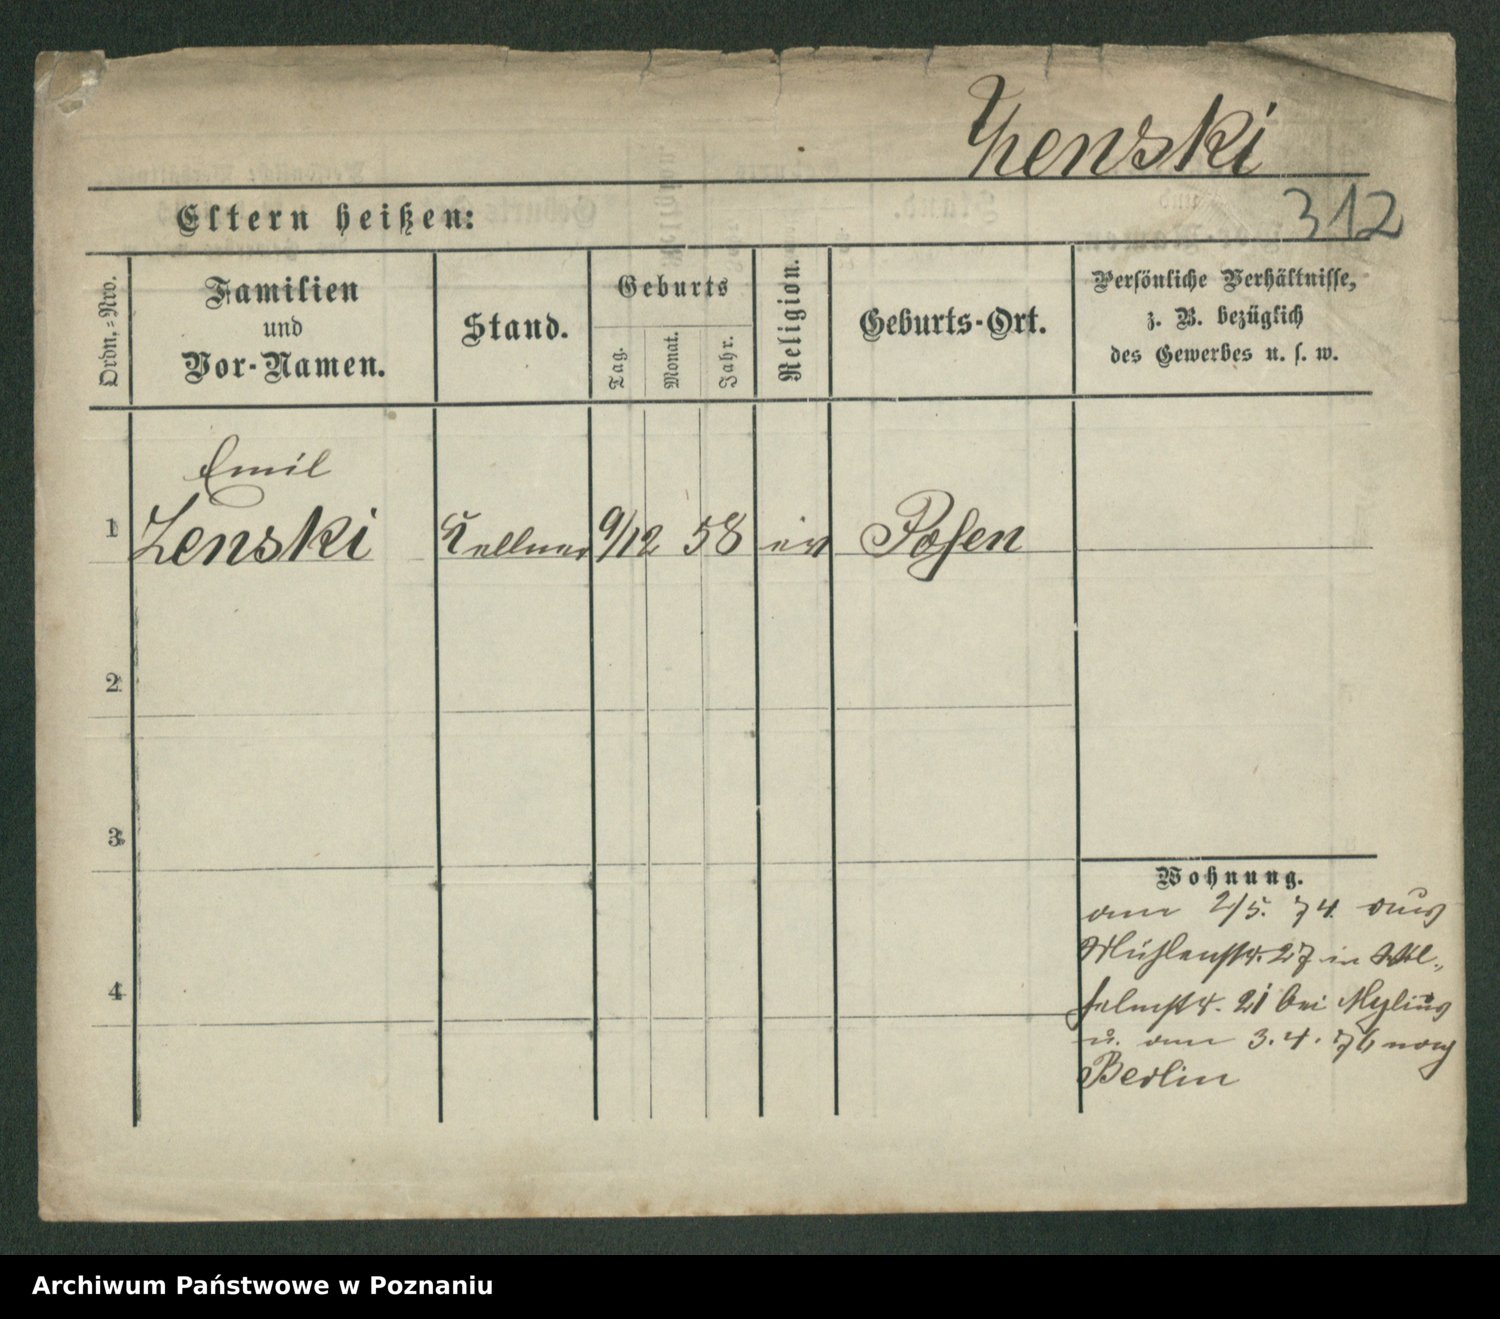 Zenski
312
Eltern heißen:
Ordn.-Nro.
Familien
und
Vor-Namen.
Stand.
Geburts
Tag.
Monat.
Jahr.
Religion.
Geburts-Ort.
Persönliche Verhältnisse,
z. B. bezüglich
des Gewerbes u. s. w.
Emil
1 Zenski Kellner 9/12 58 ev Posen
2
3
4
Wohnung.
am 2/5. 74. aus
Mühlenstr. 27 in Wil-
helmstr. 21 bei Mylius
u. am 3.4.76 nach
Berlin
Archiwum Państwowe w Poznaniu